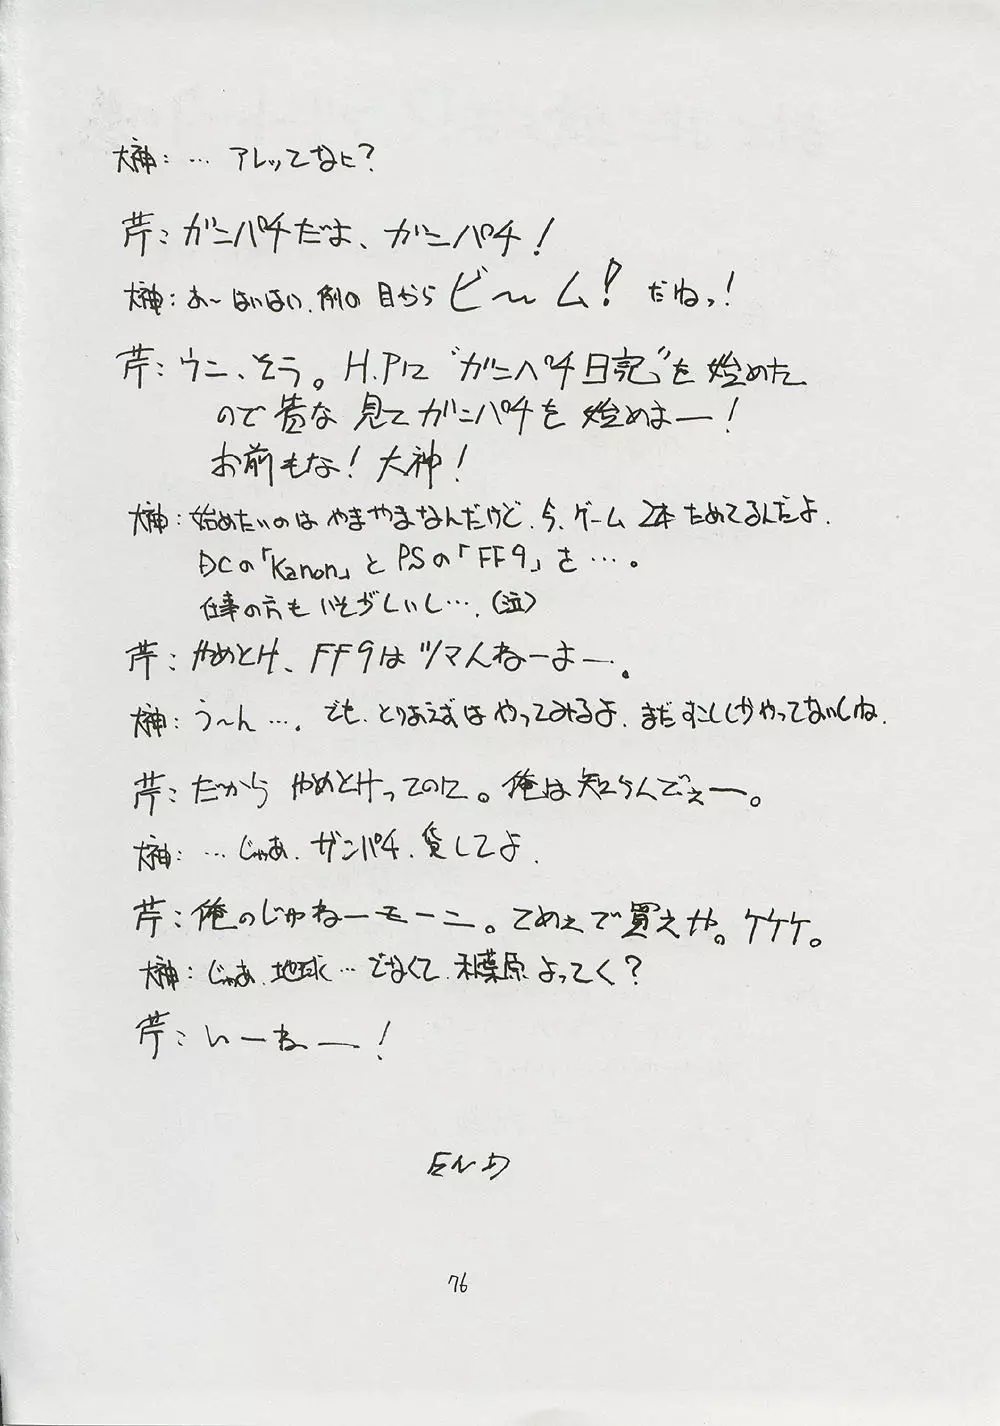 大神：… アレッてなに？
芹：ガンパチだよ、ガンパチ！
大神：あ〜はいはい、例の目からビーム！だねっ！
芹：ウン、そう。H.Pに“ガンパチ日記”を始めた
ので皆な見てガンパチを始めよー！
お前もな！大神！
大神：始めたいのはやまやまなんだけど、今、ゲーム2本ためてるんだよ、
DCの「Kanon」とPSの「FF9」を…。
仕事の方もいそがしいし…、（泣）
芹：やめとけ、FF9はツマんねーよー。
大神：う〜ん…。でも、とりあえずはやってみるよ、まだすこししかやってないしね、
芹：だからやめとけってのに。俺は知らんでぇー。
大神：…じゃあ、ガンパチ、貸してよ、
芹：俺のじゃねーモーン。てめぇで買えや。ケケケ。
大神：じゃあ、地球…でなくて、秋葉原よってく？
芹：いーねー！
END
76